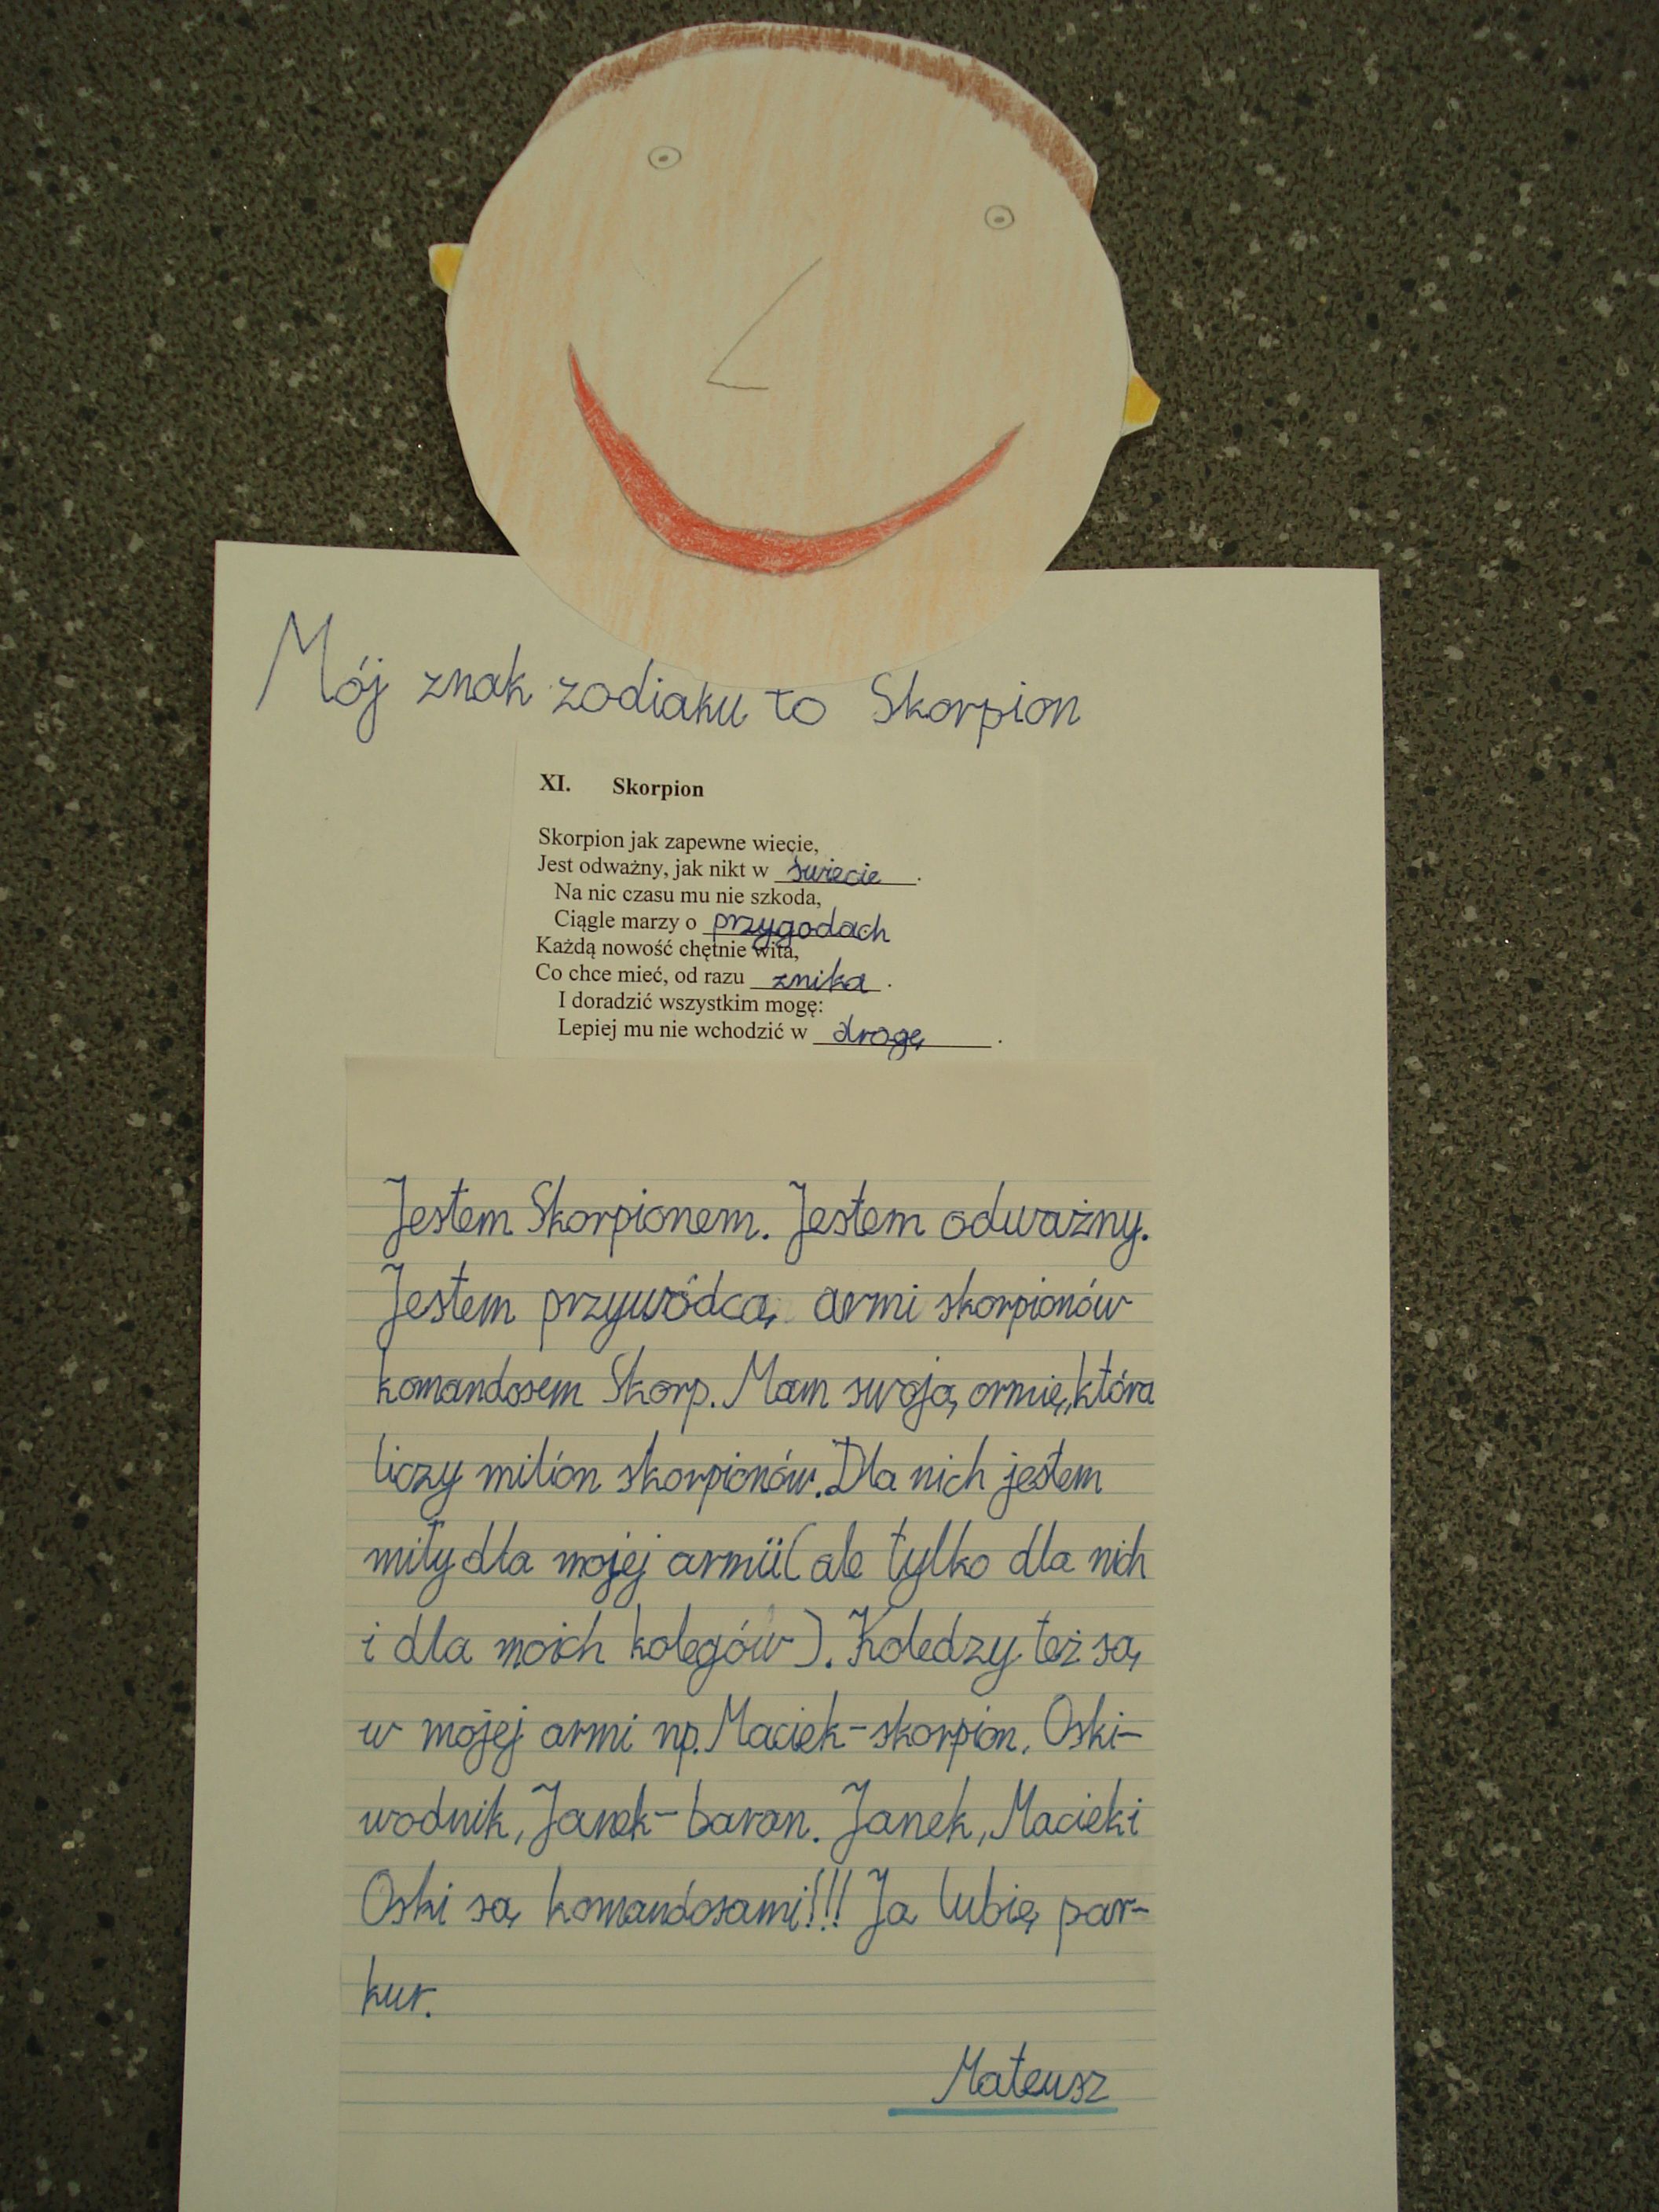 Mój znak zodiaku to Skorpion
XI. Skorpion
Skorpion jak zapewne wiecie,
Jest odważny, jak nikt w świecie.
Na nic czasu mu nie szkoda,
Ciągle marzy o przygodach
Każdą nowość chętnie wita,
Co chce mieć, od razu znika.
I doradzić wszystkim mogę:
Lepiej mu nie wchodzić w drogę.
Jestem Skorpionem. Jestem odważny.
Jestem przywódcą armi skorpionów
komandosem Skorp. Mam swoją armię, która
liczy milion skorpionów. Dla nich jestem
miły dla mojej armii (ale tylko dla nich
i dla moich kolegów). Koledzy też są
w mojej armi np. Maciek-skorpion, Oski-
wodnik, Janek-baran. Janek, Maciek i
Oski są komandosami!!! Ja lubię par-
kur.
Mateusz